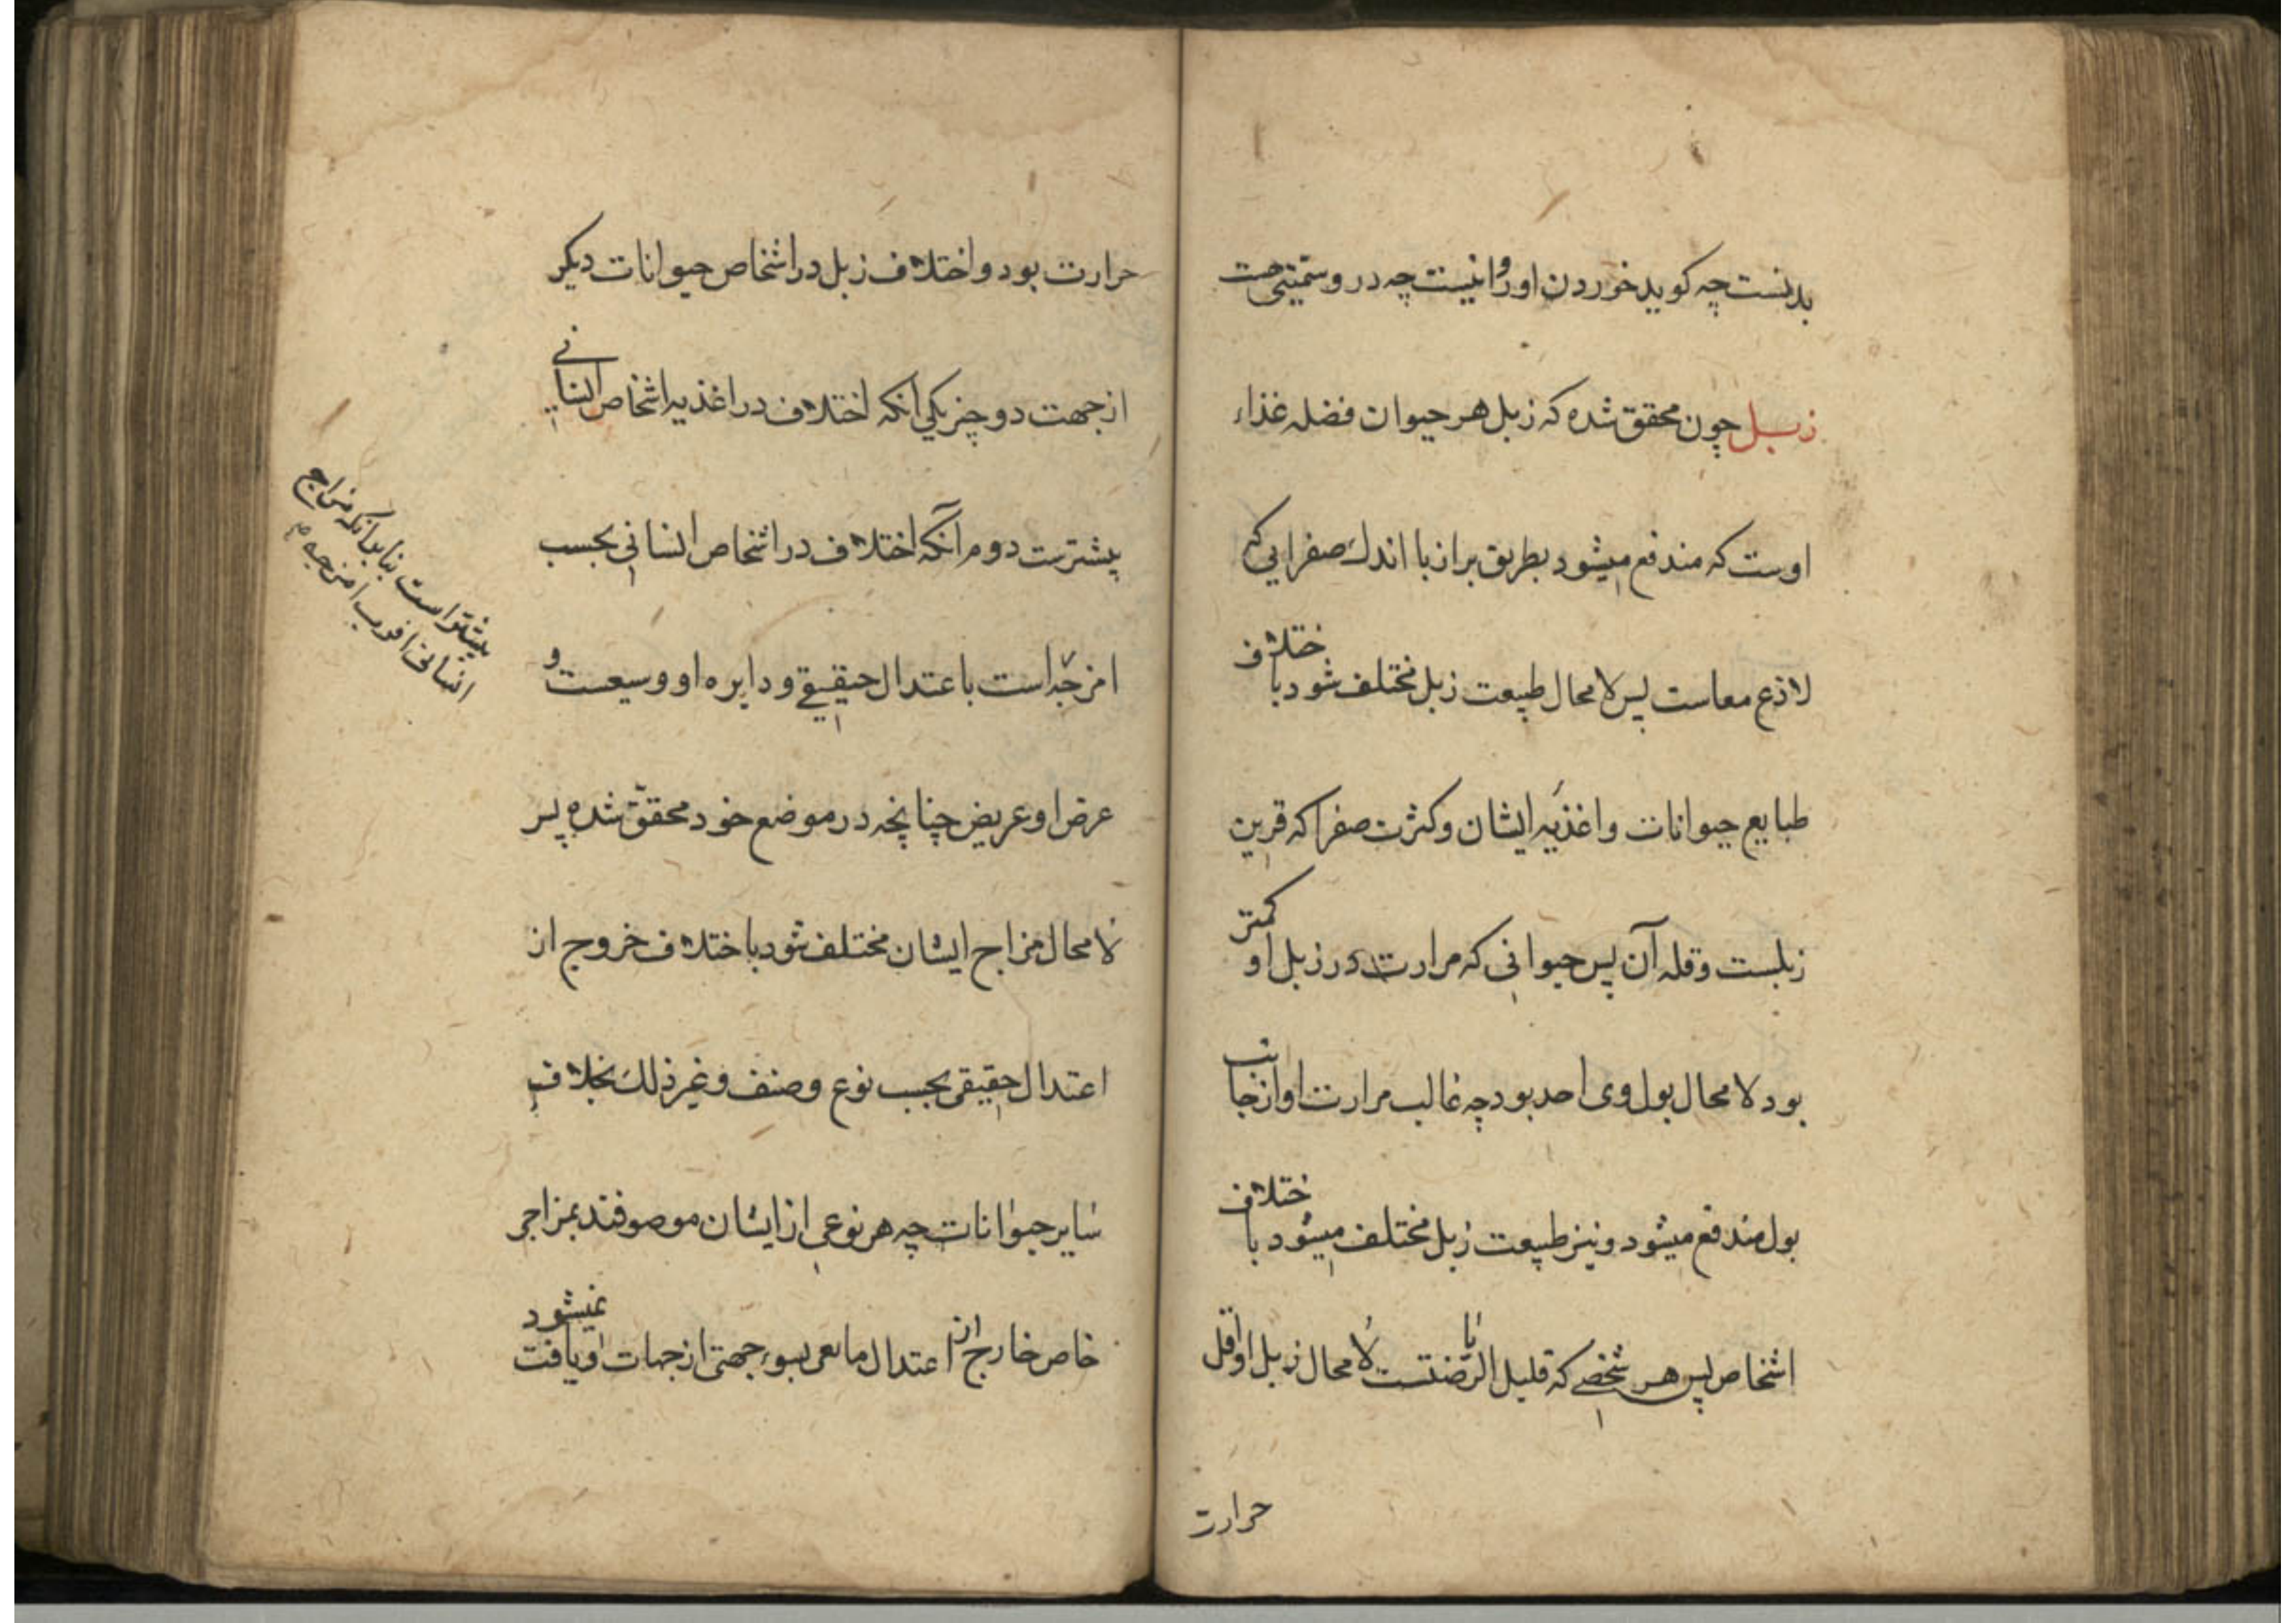 بدنست چه کوید خوردن او روا نیست چه در و سمیتی هست
زبل چون محقق شده که زبل هر حیوان فضله غذاء
اوست که مندفع میشود بطریق براز با اندک صفرایی که
لاذع معاست پس لا محال طبیعت زبل مختلف شود باختلاف
طبایع حیوانات و اغذیه ایشان و کثرت صفرا که قرین
زبلست و قله آن پس حیوانی که مرارت در زبل او کمتر
بود لا محال بول وی احد بود چه غالب مرارت او از جانب
بول مندفع میشود و نیز طبیعت زبل مختلف میشود باختلاف
اشخاص پس هر شخصی که قلیل الریاضتست لا محال زبل او اقل
حرارت
حرارت بود و اختلاف زبل در اشخاص حیوانات دیکر
از جهت دو چیز یکی انکه اختلاف در اغذیه اشخاص انسانی
بیشترست دوم آنکه اختلاف در اشخاص انسانی بحسب
امزجه است باعتدال حقیقے و دایره او وسیعست و
عرض او عریض چنانچه در موضع خود محقّق شده پس
لا محال مزاج ایشان مختلف شود باختلاف خروج از
اعتدال حقیقی بحسب نوع و صنف و غیر ذلک بخلاف
سایر حیوانات چه هر نوعی از ایشان موصوفند بمزاجی
خاص خارج از اعتدال مابعی بسوء جهتی از جهات او یافت نمیشود
بیشتر است بنابرانکه مزاج
انسانی اقرب امزجه